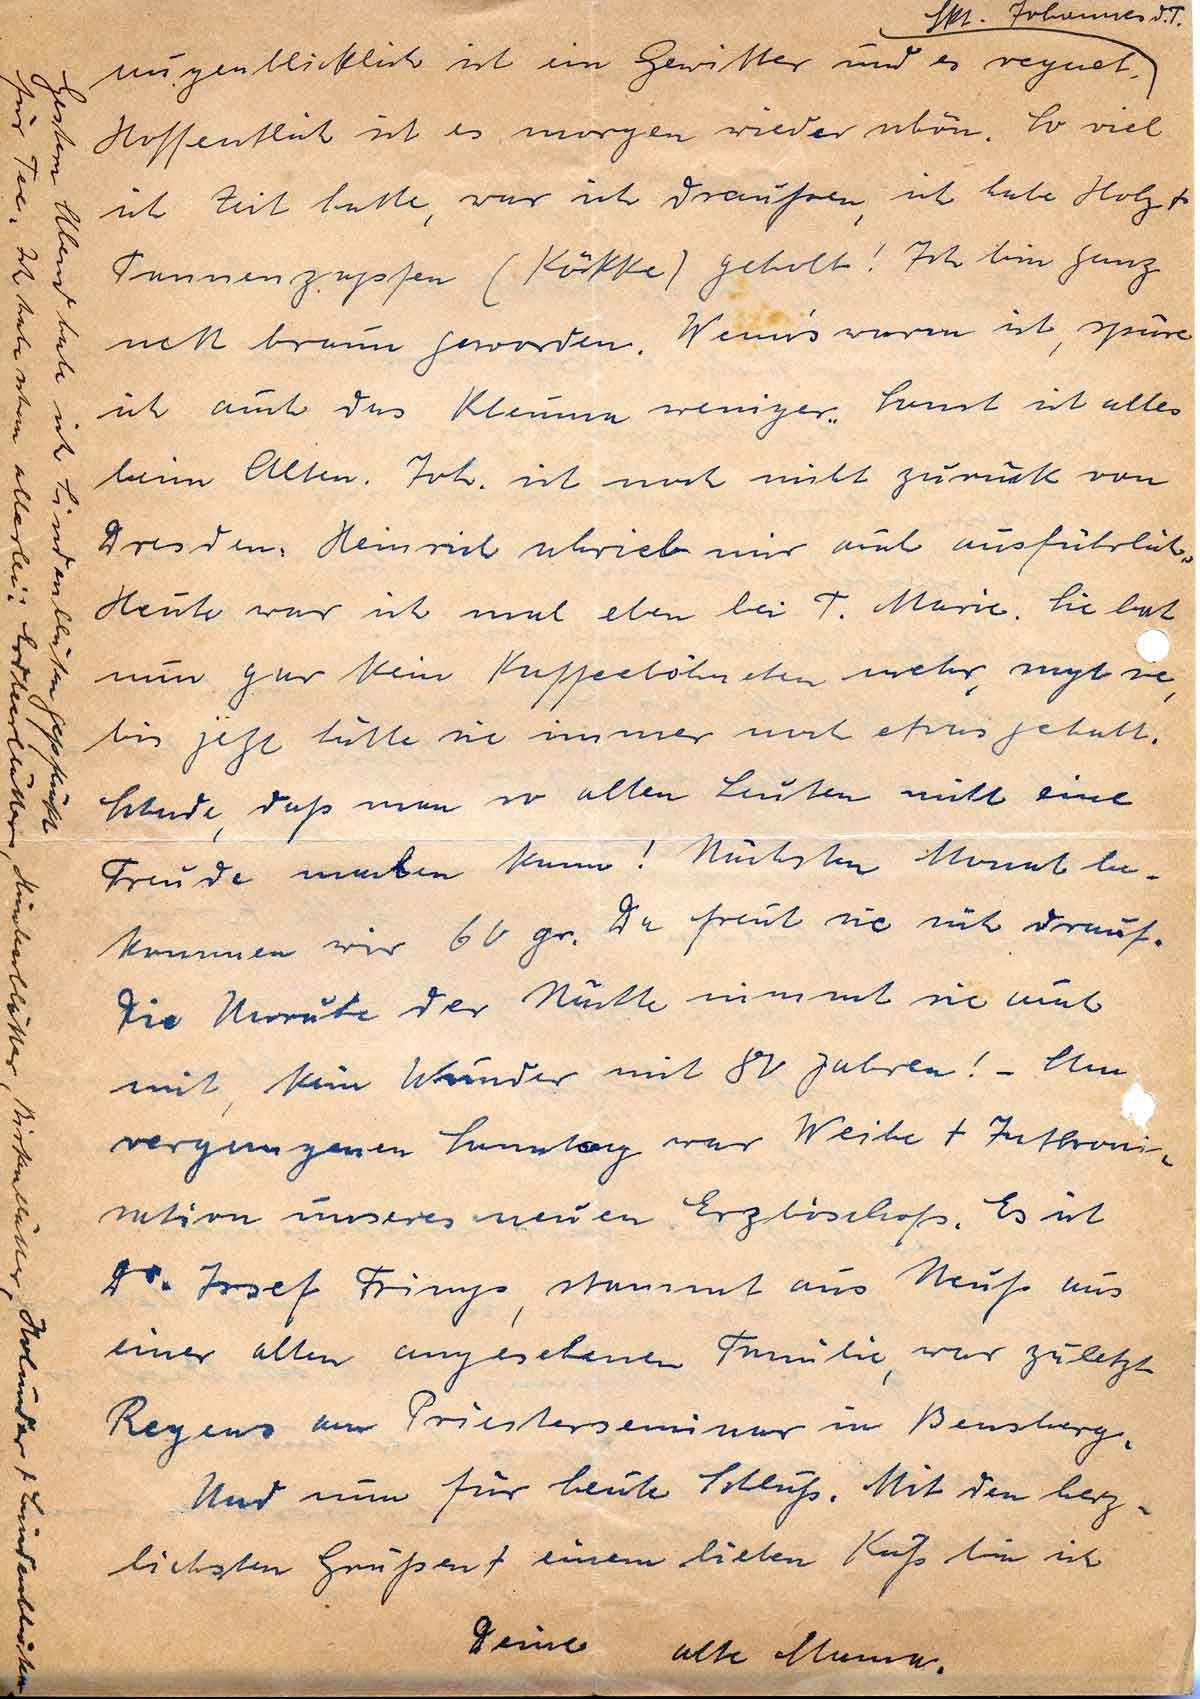 Skt. Johannes d. T.
augenblicklich ist ein Gewitter und es regnet.
Hoffentlich ist es morgen wieder schön. So viel
ich Zeit hatte, war ich draußen, ich habe Holz +
Tannenzapfen (Kökke) geholt! Ich bin ganz
nett braun geworden. Wenn's warm ist, spüre
ich auch das Rheuma weniger. Sonst ist alles
beim Alten. Joh. ist noch nicht zurück von
Dresden. Heinrich schrieb mir auch ausführlich.
Heute war ich mal eben bei T. Marie. Sie hat
nun gar kein Kaffeeböhnchen mehr, sagt sie,
bis jetzt hätte sie immer noch etwas gehabt.
Schade, daß man so alten Leuten nicht eine
Freude machen kann! Nächsten Monat be-
kommen wir 60 gr. Da freut sie sich drauf.
Die Unruhe der Nächte nimmt sie auch
mit, kein Wunder mit 80 Jahren! - Am
vergangenen Sonntag war Weihe + Inthroni-
sation unseres neuen Erzbischofs. Es ist
Dr. Josef Frings, stammt aus Neuß aus
einer alten angesehenen Familie, war zuletzt
Regens am Priesterseminar in Bensberg.
Und nun für heute Schluß. Mit den herz-
lichsten Grüßen + einem lieben Kuß bin ich
Deine alte Mama.
Gestern Abend habe ich Lindenblüten gepflückt
für Tee. Ich habe schon allerlei: Erdbeerblätter, Himbeerblätter, Birkenblätter, Holunder + Lindenblüten